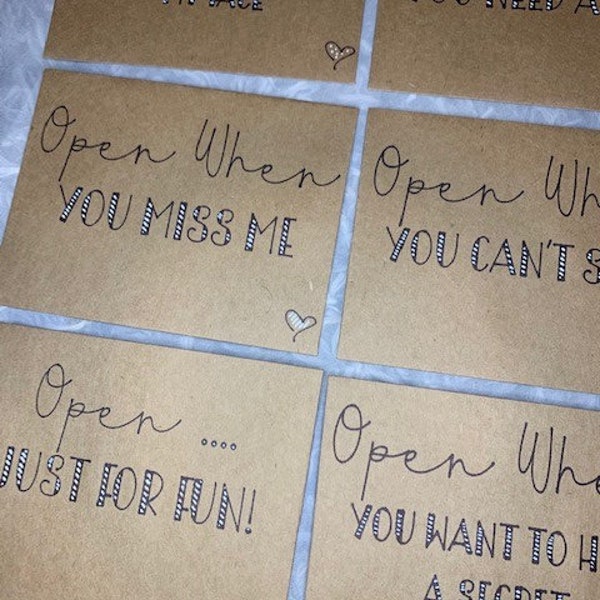 YOU NEED A
Open When
YOU MISS ME
Open
YOU CAN'T
Open ....
JUST FOR FUN!
Open
YOU WANT TO
A SECRET